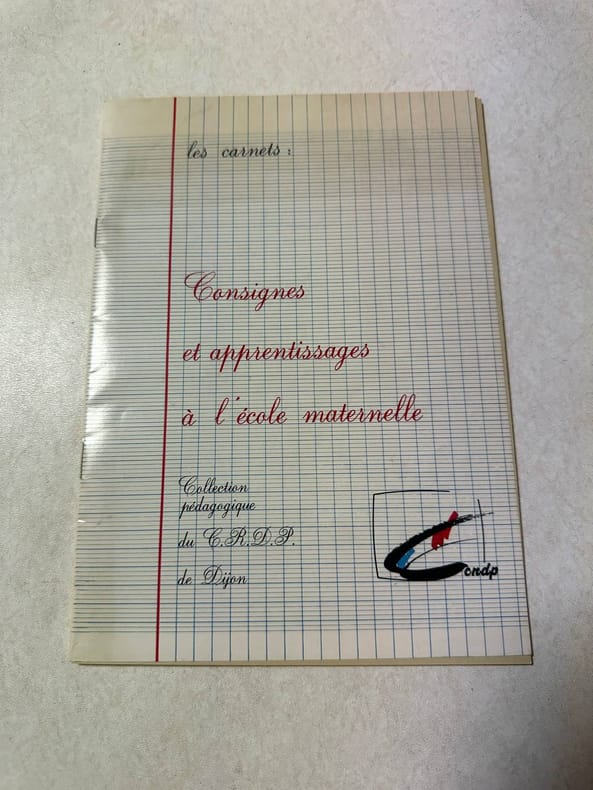 les carnets :
Consignes
et apprentissages
à l'école maternelle
Collection
pédagogique
du C.R.D.P.
de Dijon
crdp